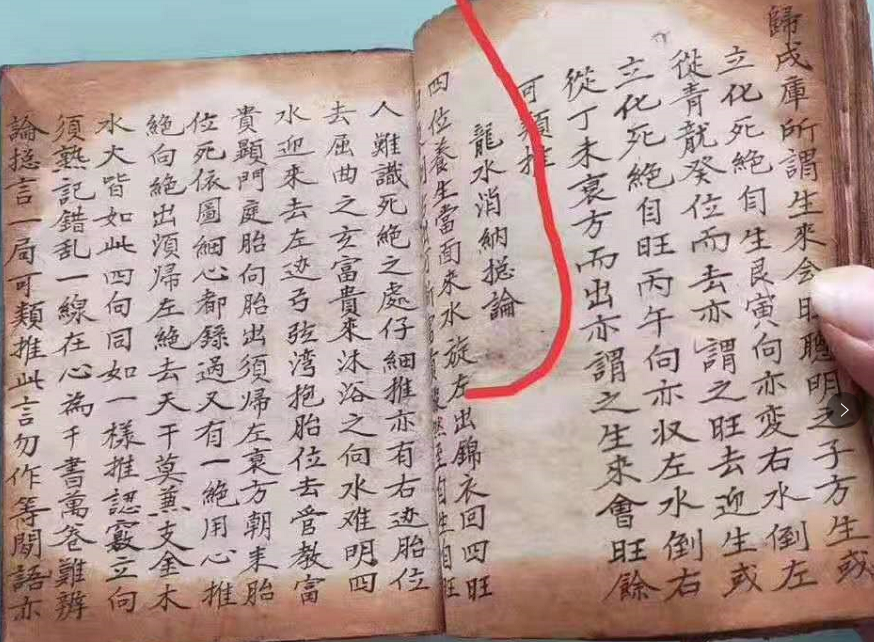 歸成庫所謂生來会旺聰明之子方生或
立化死絕自生艮寅向亦变右水倒左
從青龍癸位而去亦謂之旺去迎生或
立化死絕自旺丙午向亦収左水倒右
從丁未衰方而出亦謂之生來會旺餘
可類推
龍水消納捴論
四位養生當面來水旋左出錦衣回四旺
自生自旺
人難識死絕之處仔細推亦有右边胎位
去屈曲之玄富貴來沐浴之向水难明四
水迎來去左边弓弦湾抱胎位去管教富
貴顯門庭胎向胎出須歸左衰方朝耒胎
位死依圖細心都録過又有一絕用心推
絕向絕出須歸左絕去天干莫兼支金木
水大皆如此四向同如一樣推認竅立向
須熟記錯乱一線在心為千書萬卷難辨
論捴言一局可類推此言勿作等閒語亦